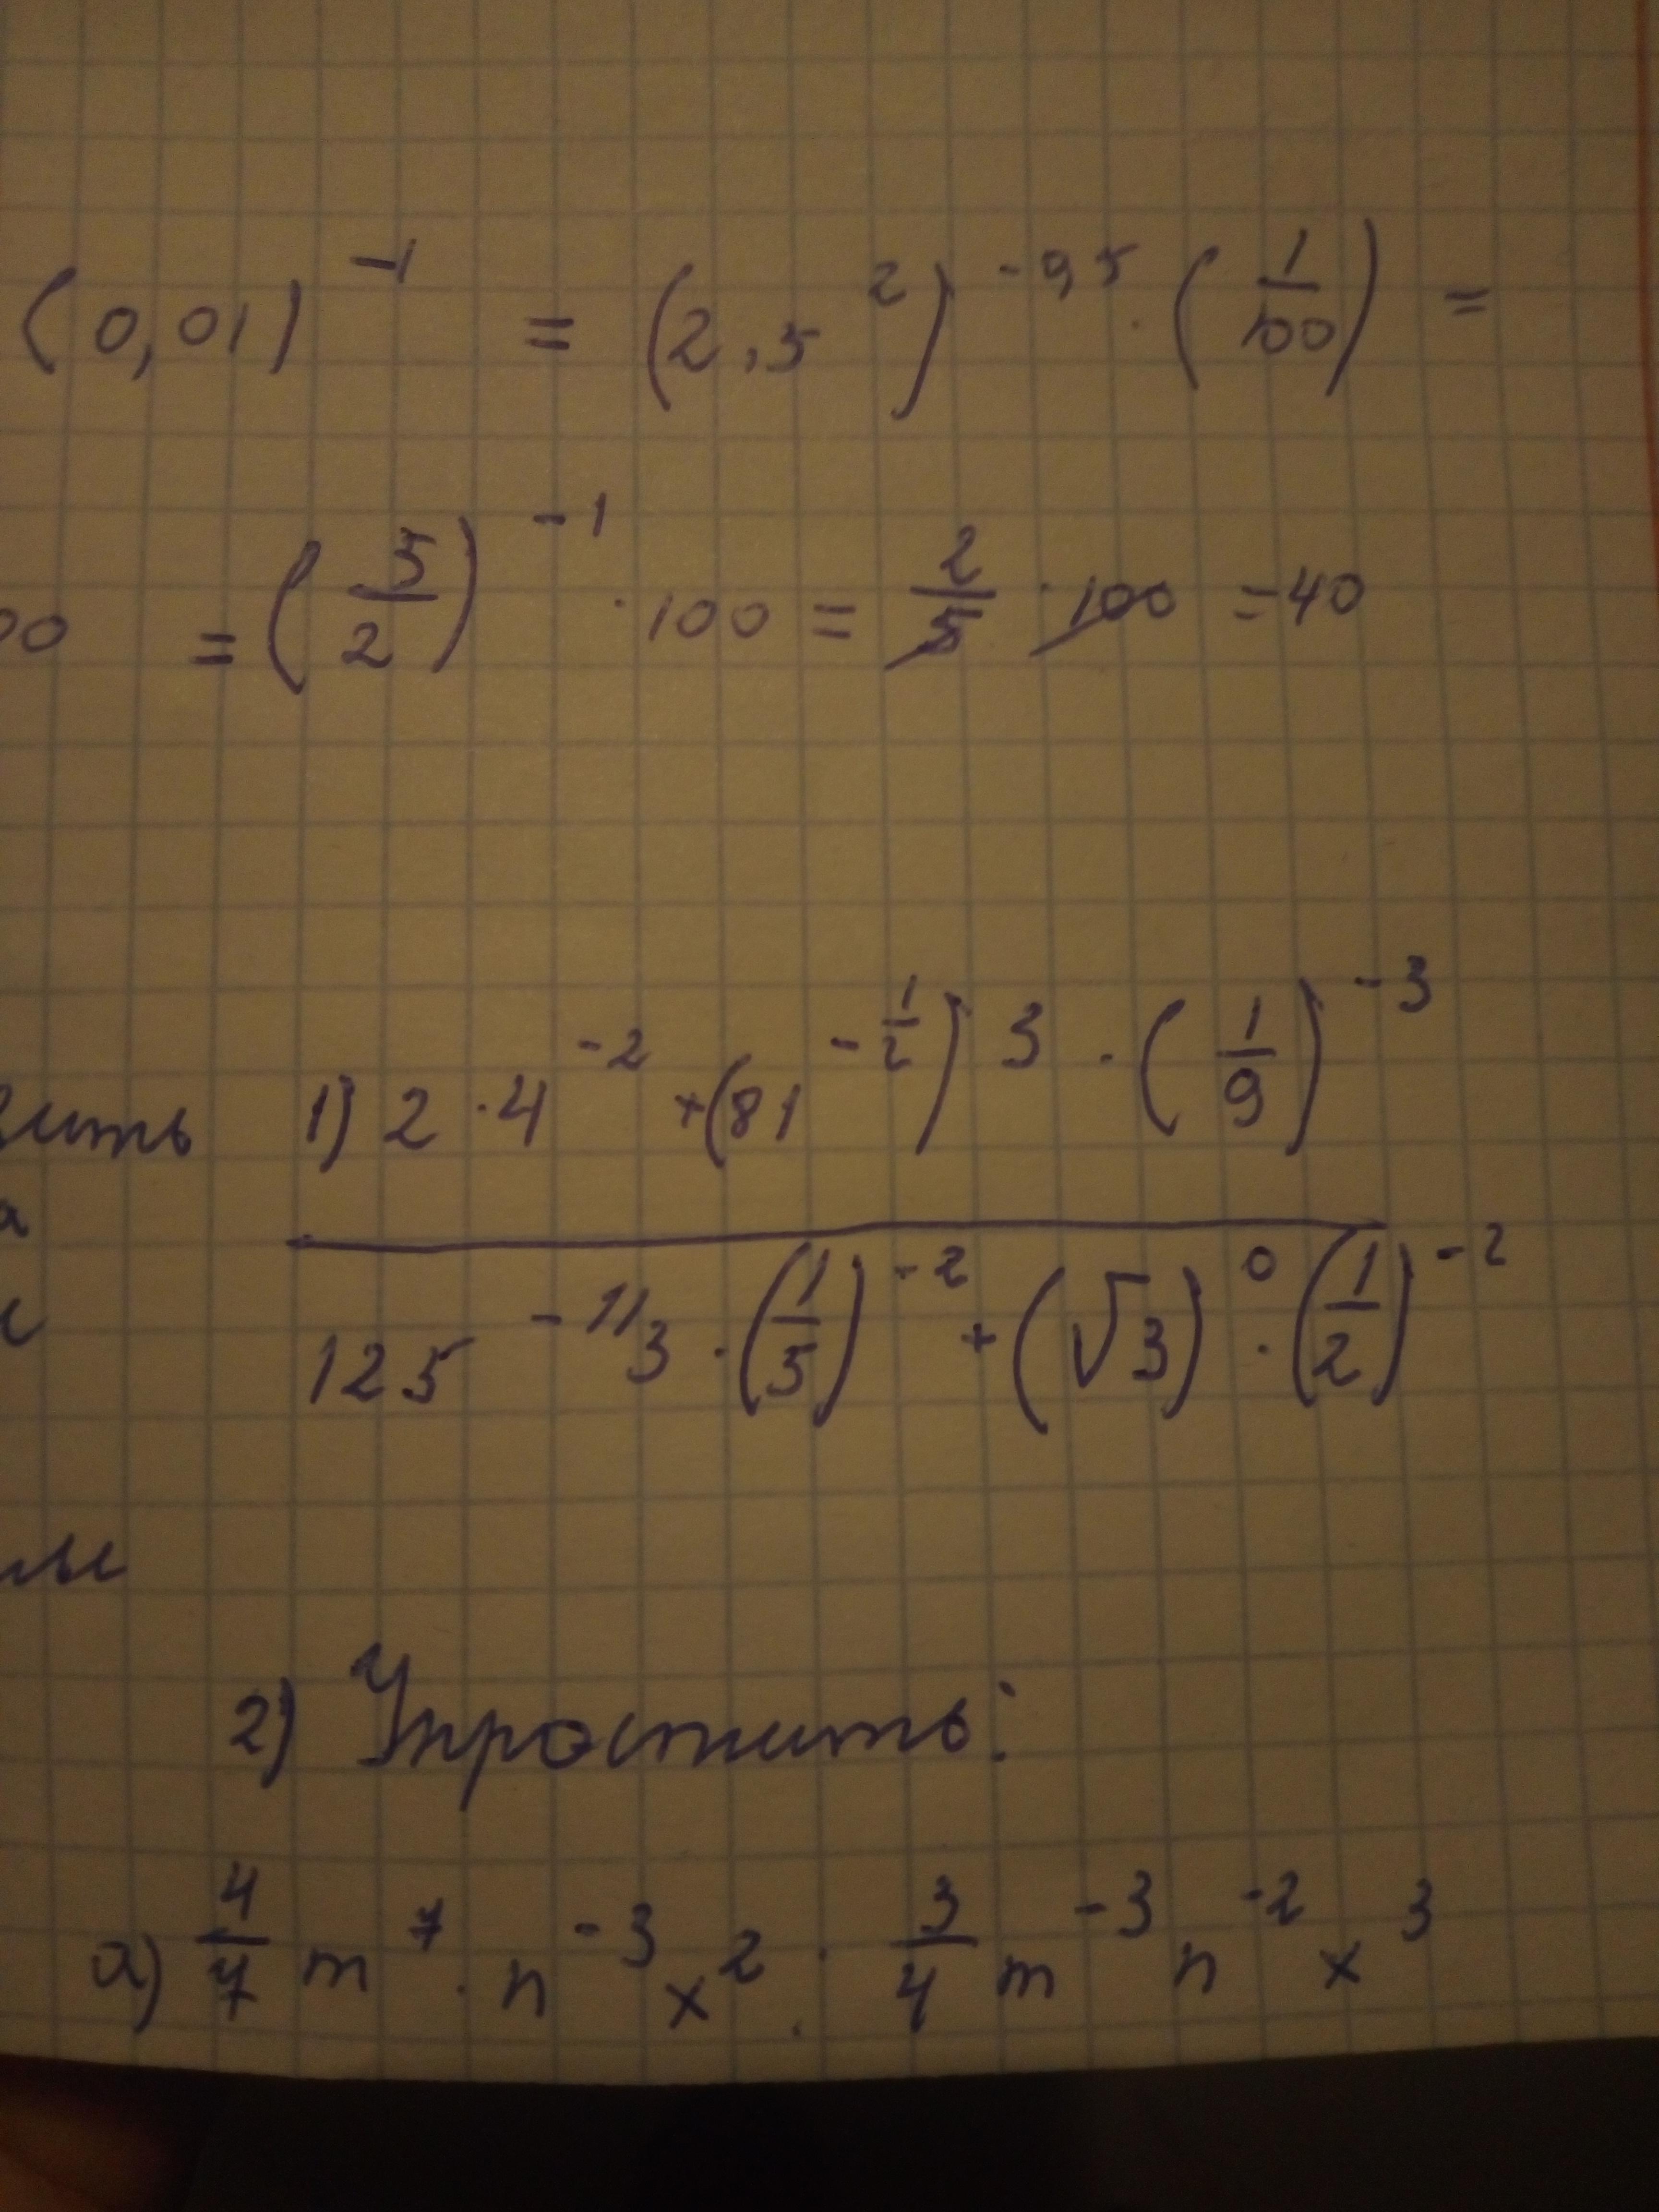 (0,01)⁻¹ = (2,5²)⁻⁰˒⁵ · (1/100) =
00 = (5/2)⁻¹ · 100 = 2/5 · 100 = 40
1) 2 · 4⁻² + (81^(-1/2))³ · (1/9)⁻³
125^(-1/3) · (1/5)⁻² + (√3)⁰ · (1/2)⁻²
2) Упростить:
а) 4/7 m⁷ · n⁻³ x² · 3/4 m⁻³ n⁻² x³